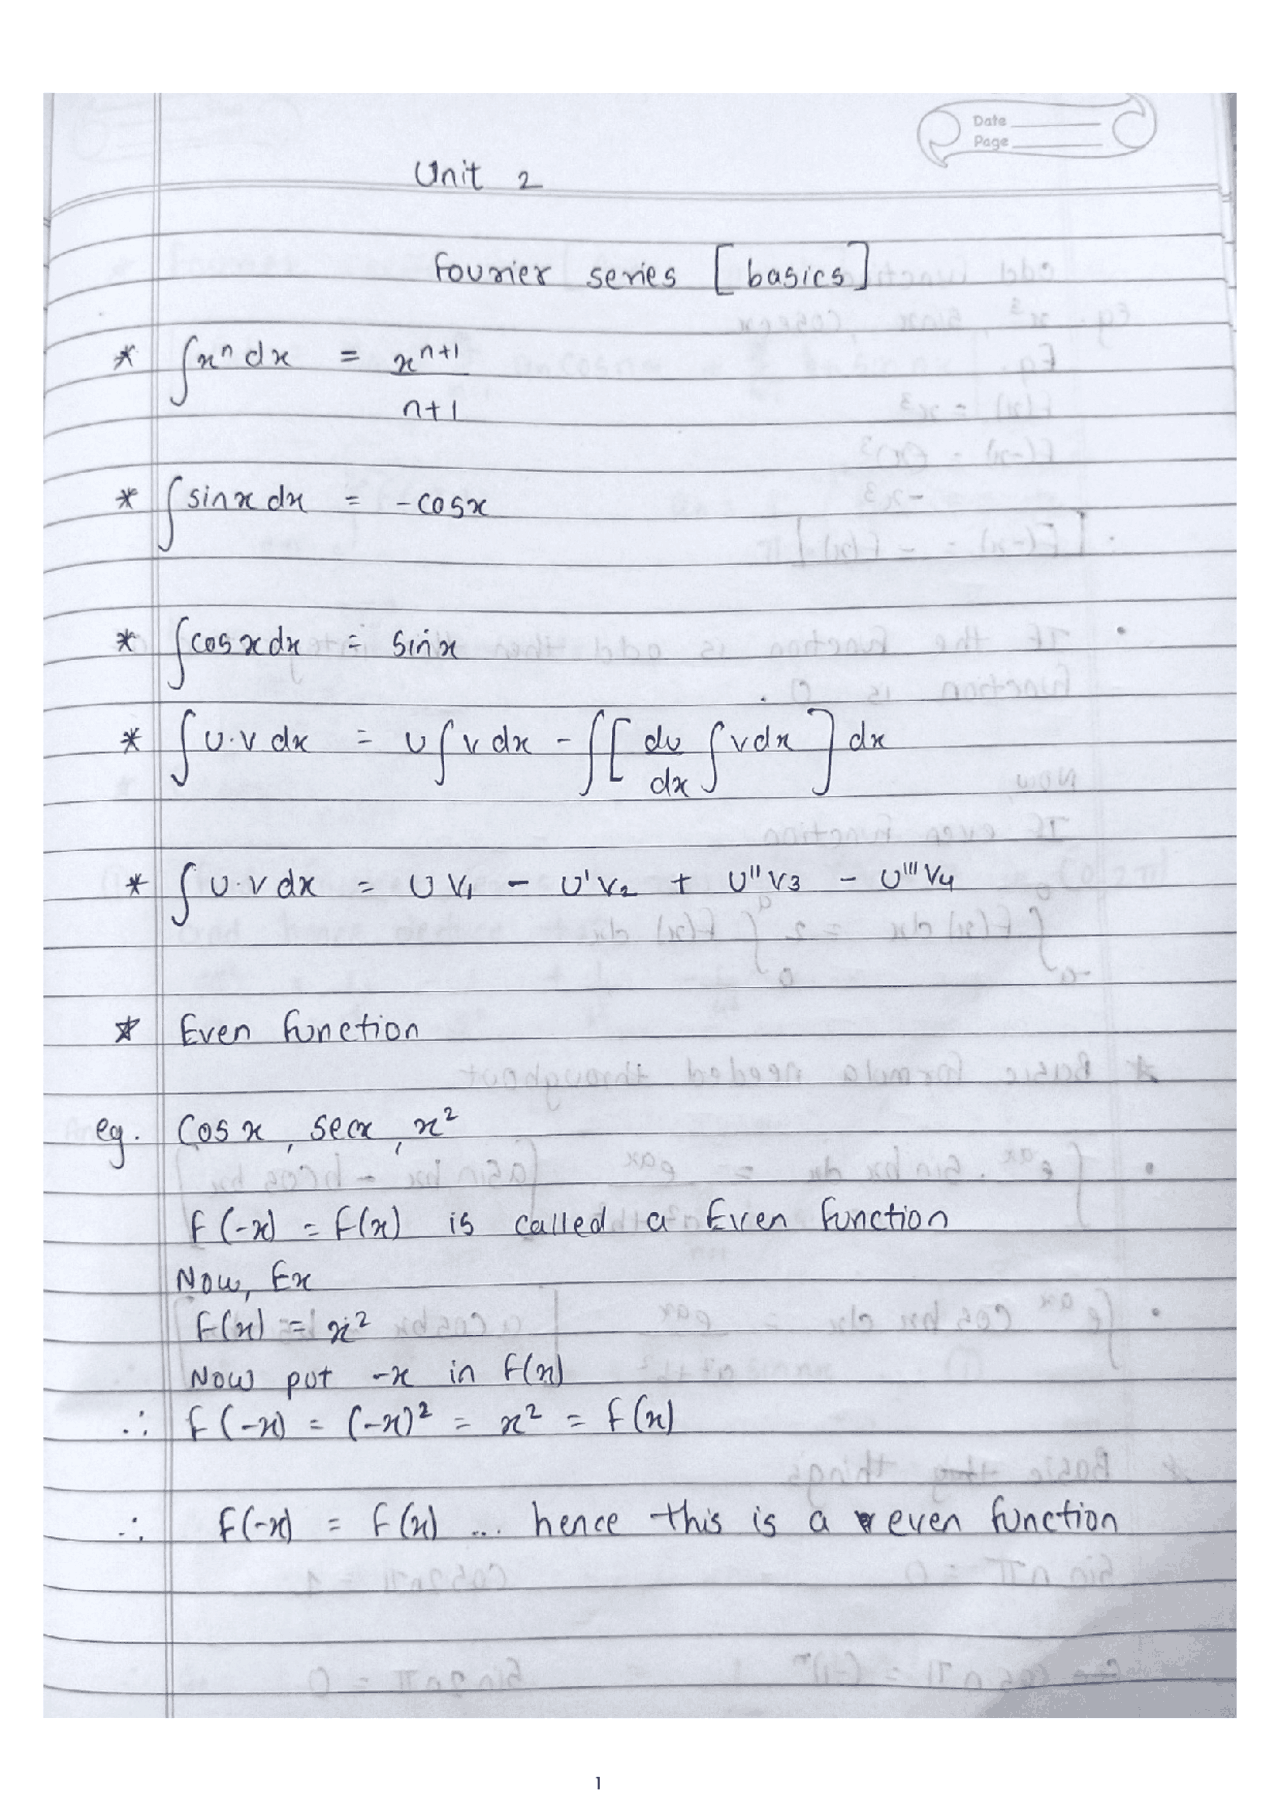 Date
Page
Unit 2
Fourier series [basics]
* ∫xⁿ dx = xⁿ⁺¹ / n+1
* ∫sinx dx = -cosx
* ∫cosxdx = sinx
* ∫u.v dx = u∫v dx - ∫[du/dx ∫vdx] dx
* ∫u.v dx = u v₁ - u'v₂ + u''v₃ - u'''v₄
* Even function
eg. Cosx, secx, x²
f(-x) = f(x) is called a Even function
Now, Ex
f(x) = x²
Now put -x in f(x)
∴ f(-x) = (-x)² = x² = f(x)
∴ f(-x) = f(x) ... hence this is a even function
1